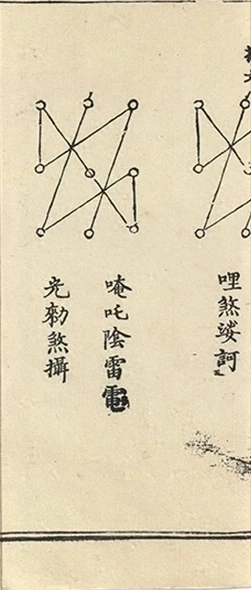 哩煞娑訶
唵吒陰雷電
光勑煞攝